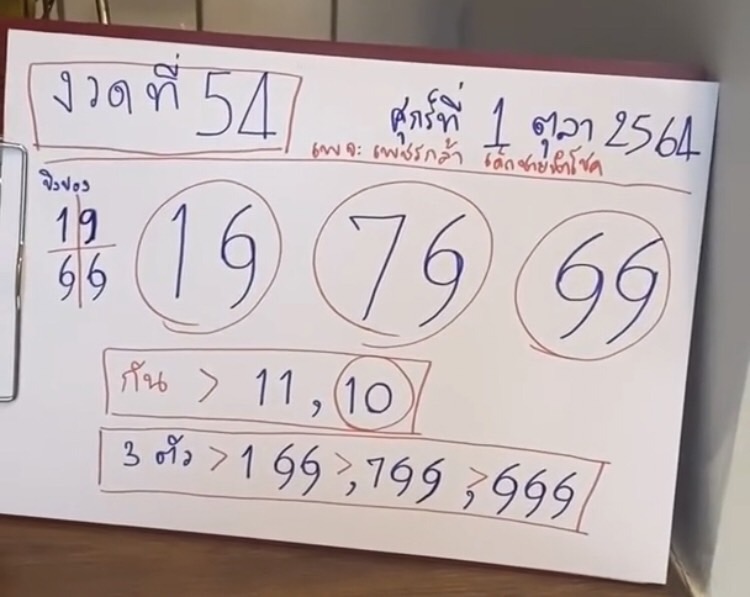 งวดที่ 54
ศุกร์ที่ 1 ตุลา 2564
เพจะ เพชรกล้า เด็กชายนำโชค
ปิงปอง
1 9
6 6
16 76 66
กัน > 11, 10
3 ตัว > 166 >, 766, > 666